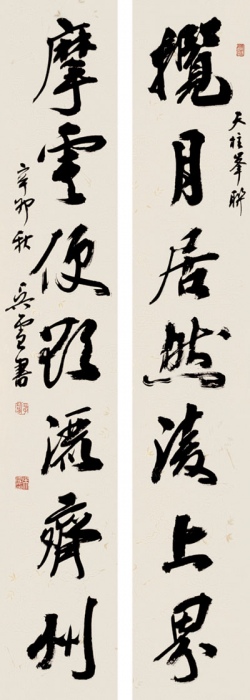 攬月居然淩上界
天柱峯聯
摩雲便欲灑齊州
辛卯秋
吳雪書